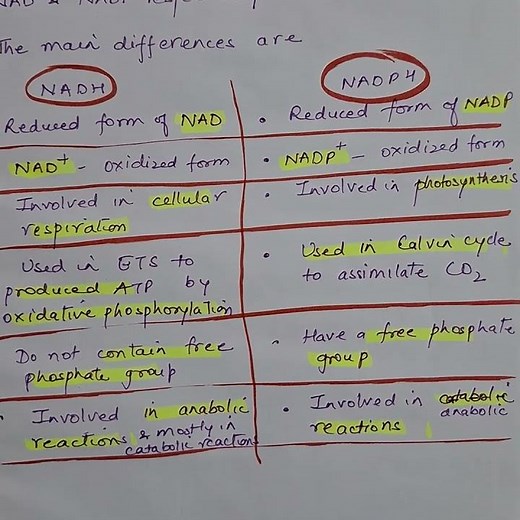 The main differences are
NADH
Reduced form of NAD
NAD+ - oxidized form
Involved in cellular
respiration
Used in ETS to
produced ATP by
oxidative phosphorylation
Do not contain free
phosphate group
Involved in anabolic
reactions & mostly in
catabolic reactions
NADPH
• Reduced form of NADP
• NADP+ - oxidized form
• Involved in photosynthesis
• Used in Calvin cycle
to assimilate CO2
• Have a free phosphate
group
• Involved in catabolic
anabolic
reactions